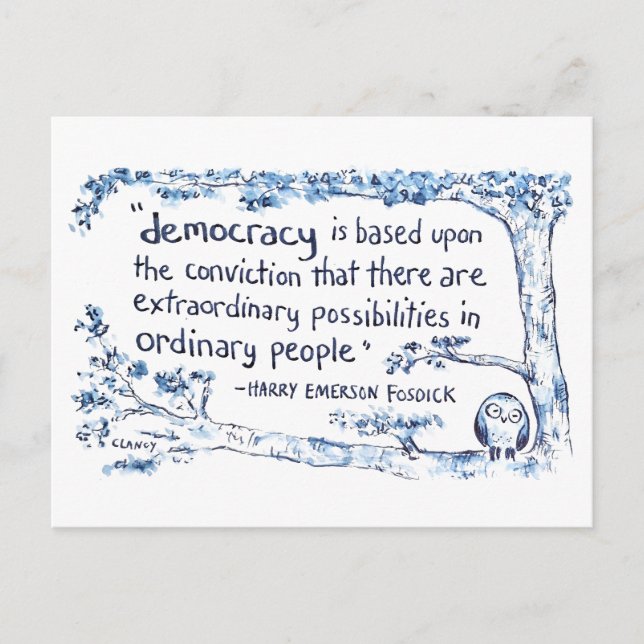 "democracy is based upon
the conviction that there are
extraordinary possibilities in
ordinary people"
-HARRY EMERSON FOSDICK
CLANCY